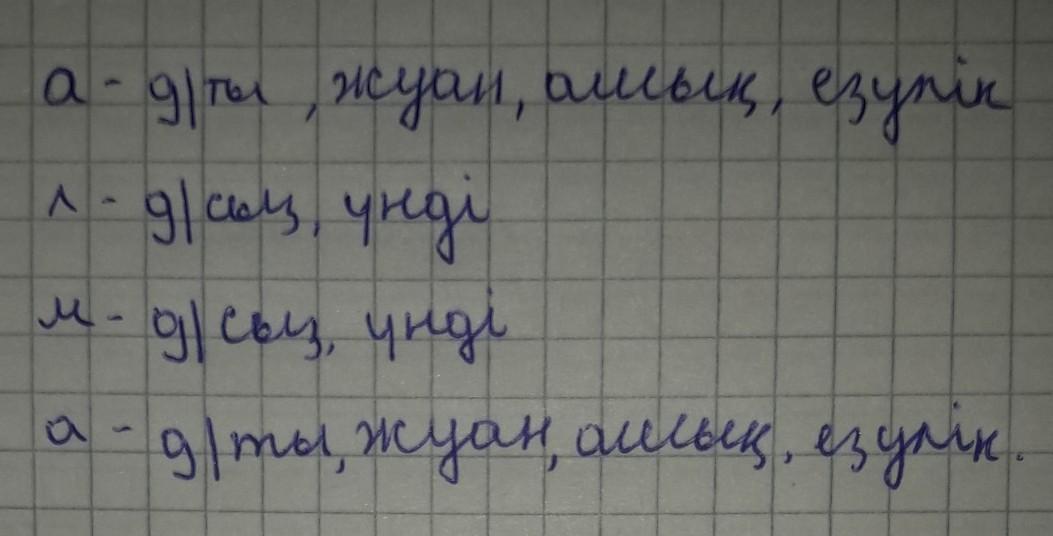 а - д/ты, жуан, ашық, езулік
л - д/сыз, үнді
м - д/сыз, үнді
а - д/ты, жуан, ашық, езулік.